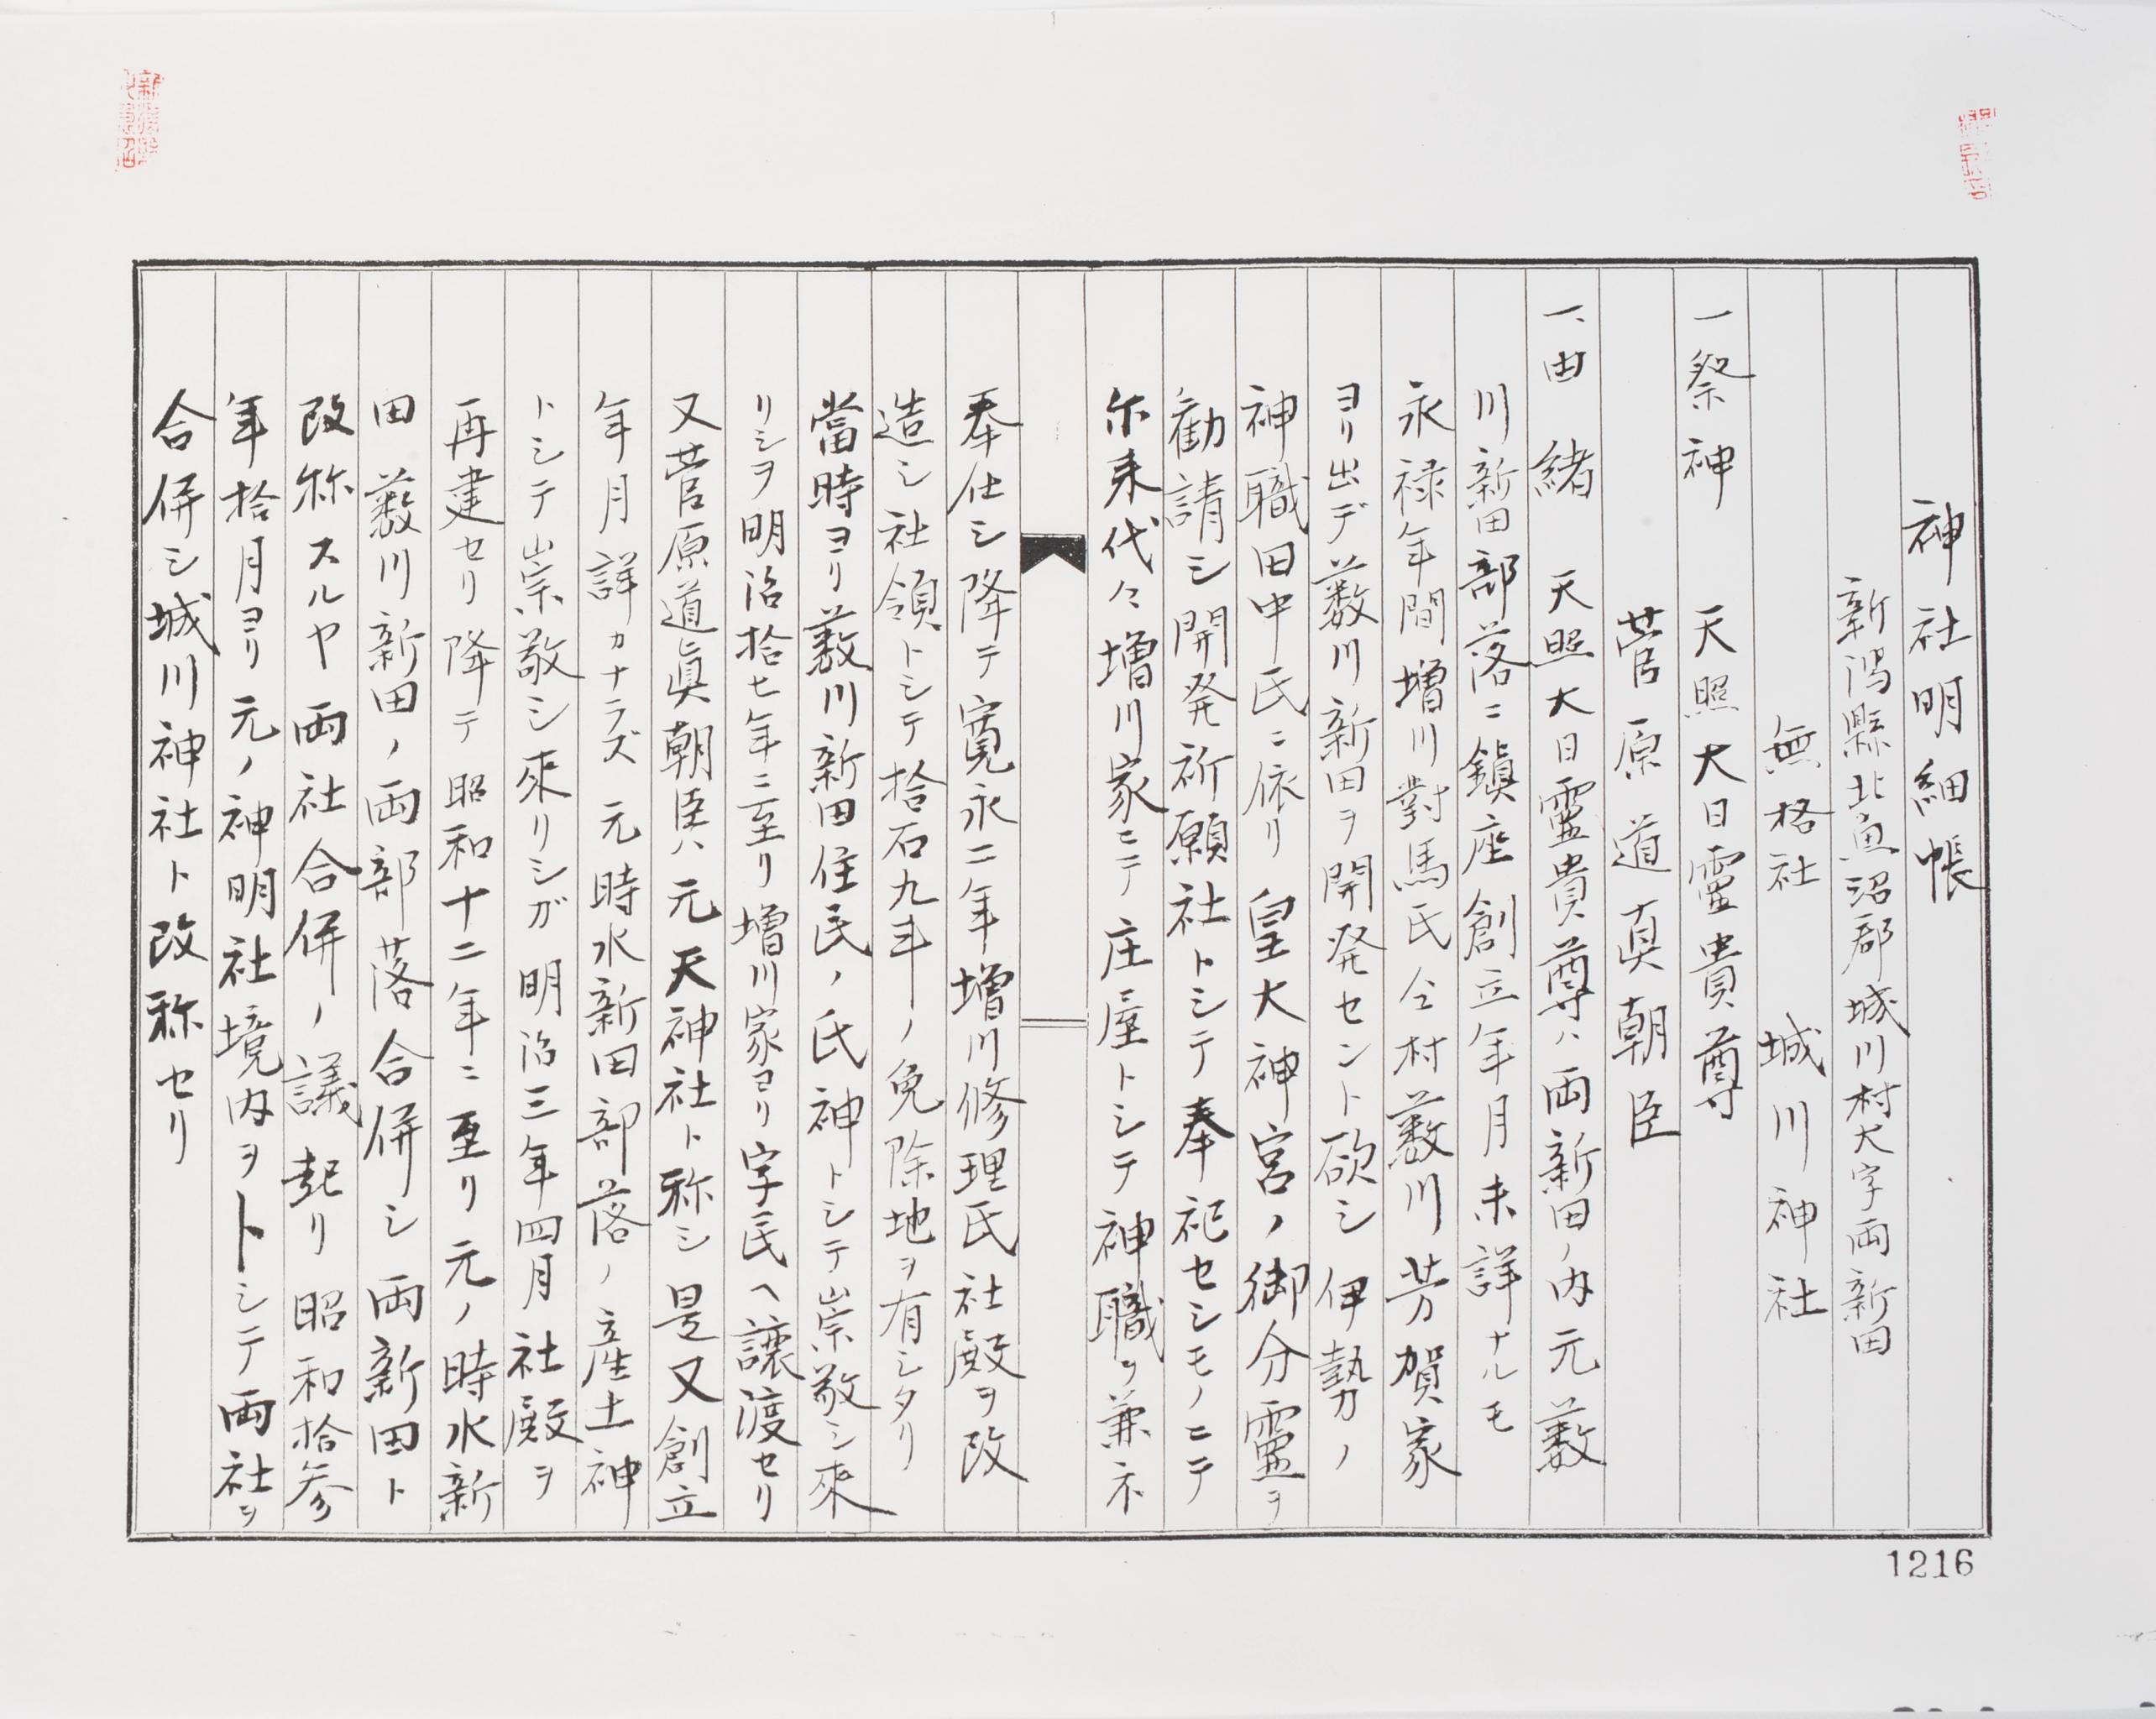 神社明細帳
新潟縣北魚沼郡城川村大字両新田
無格社　城川神社
一祭神　天照大日孁貴尊
菅原道真朝臣
一、由緒　天照大日孁貴尊ハ両新田ノ内元薮
川新田部落ニ鎮座創立年月未詳ナルモ
永禄年間増川對馬氏仝村薮川芳賀家
ヨリ出デ薮川新田ヲ開発セント欲シ伊勢ノ
神職田中氏ニ依リ皇大神宮ノ御分靈ヲ
勧請シ開発祈願社トシテ奉祀セシモノニテ
尓来代々増川家ニテ庄屋トシテ神職ヲ兼ネ
奉仕シ降テ寛永二年増川修理氏社殿ヲ改
造シ社領トシテ拾石九斗ノ免除地ヲ有シタリ
當時ヨリ薮川新田住民ノ氏神トシテ崇敬シ來
リシヲ明治拾七年ニ至リ増川家ヨリ字民ヘ譲渡セリ
又菅原道眞朝臣ハ元天神社ト称シ是又創立
年月詳カナラズ元時水新田部落ノ産土神
トシテ崇敬シ來リシガ明治三年四月社殿ヲ
再建セリ降テ昭和十二年ニ至リ元ノ時水新
田薮川新田ノ両部落合併シ両新田ト
改称スルヤ両社合併ノ議起リ昭和拾参
年拾月ヨリ元ノ神明社境内ヲトシテ両社ヲ
合併シ城川神社ト改称セリ
1216